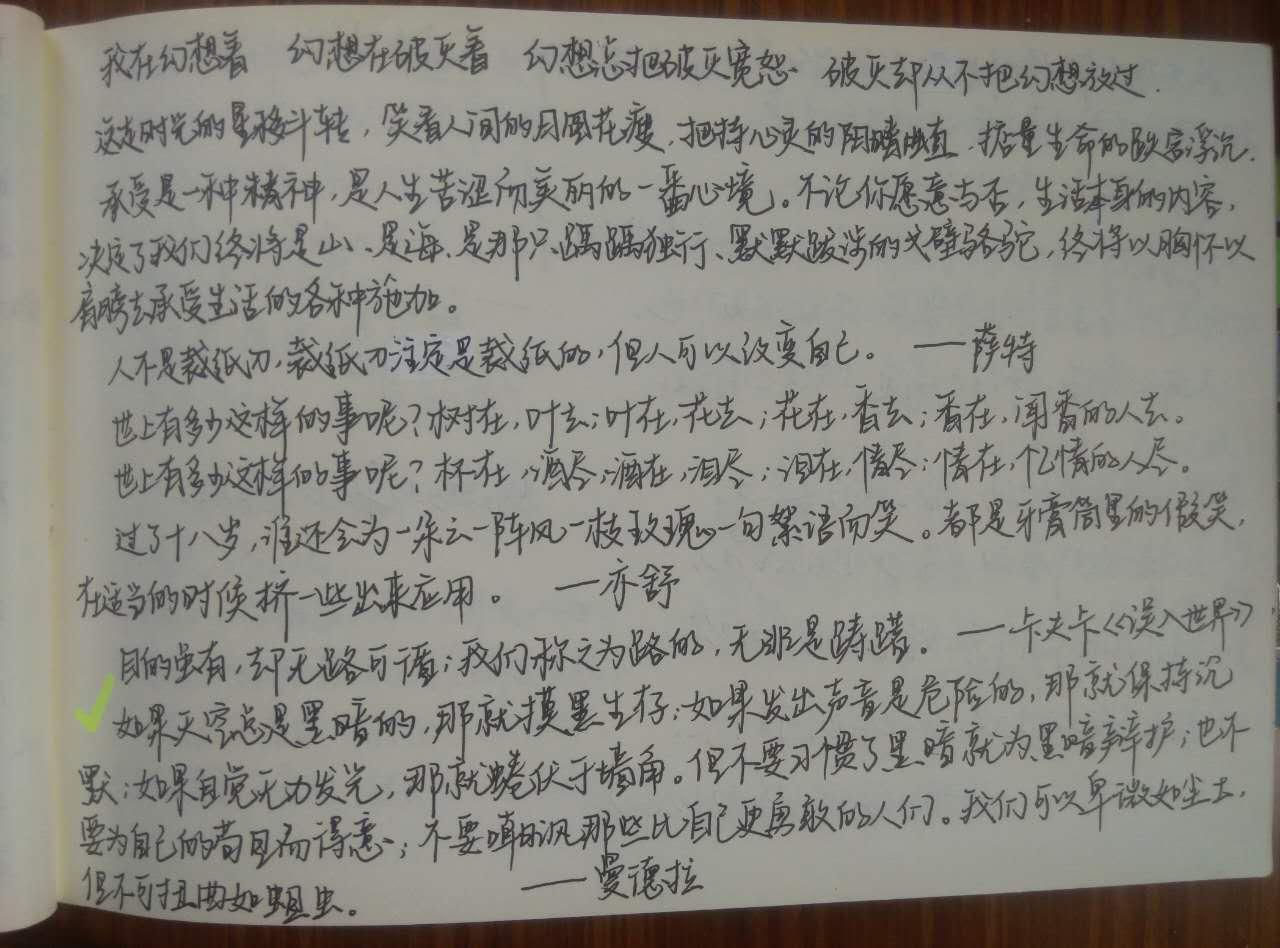 我在幻想着 幻想在破灭着 幻想总把破灭宽恕 破灭却从不把幻想放过.
这走时光的星移斗转，笑看人间的月圆花瘦，把持心灵的阴晴曲直，掂量生命的欧客浮沉.
承受是一种精神，是人生苦涩而美丽的一番心境。不论你愿意与否，生活本身的内容，
决定了我们终将是山、是海、是那只踽踽独行、默默跋涉的戈壁骆驼，终将以胸怀以
肩膀去承受生活的各种施加。
人不是裁纸刀，裁纸刀注定是裁纸的，但人可以改变自己。 ——萨特
世上有多少这样的事呢？树在，叶去；叶在，花去；花在，香去；香在，闻香的人去。
世上有多少这样的事呢？杯在，酒尽；酒在，泪尽；泪在，情尽；情在，忆情的人尽。
过了十八岁，谁还会为一朵云一阵风一枝玫瑰一句絮语而笑。都是牙膏筒里的假笑，
在适当的时候挤一些出来应用。 ——亦舒
目的虽有，却无路可循；我们称之为路的，无非是踌躇。 ——卡夫卡《误入世界》
如果天空总是黑暗的，那就摸黑生存；如果发出声音是危险的，那就保持沉
默；如果自觉无力发光，那就蜷伏于墙角。但不要习惯了黑暗就为黑暗辩护；也不
要为自己的苟且而得意；不要嘲讽那些比自己更勇敢的人们。我们可以卑微如尘土，
但不可扭曲如蛆虫。 ——曼德拉